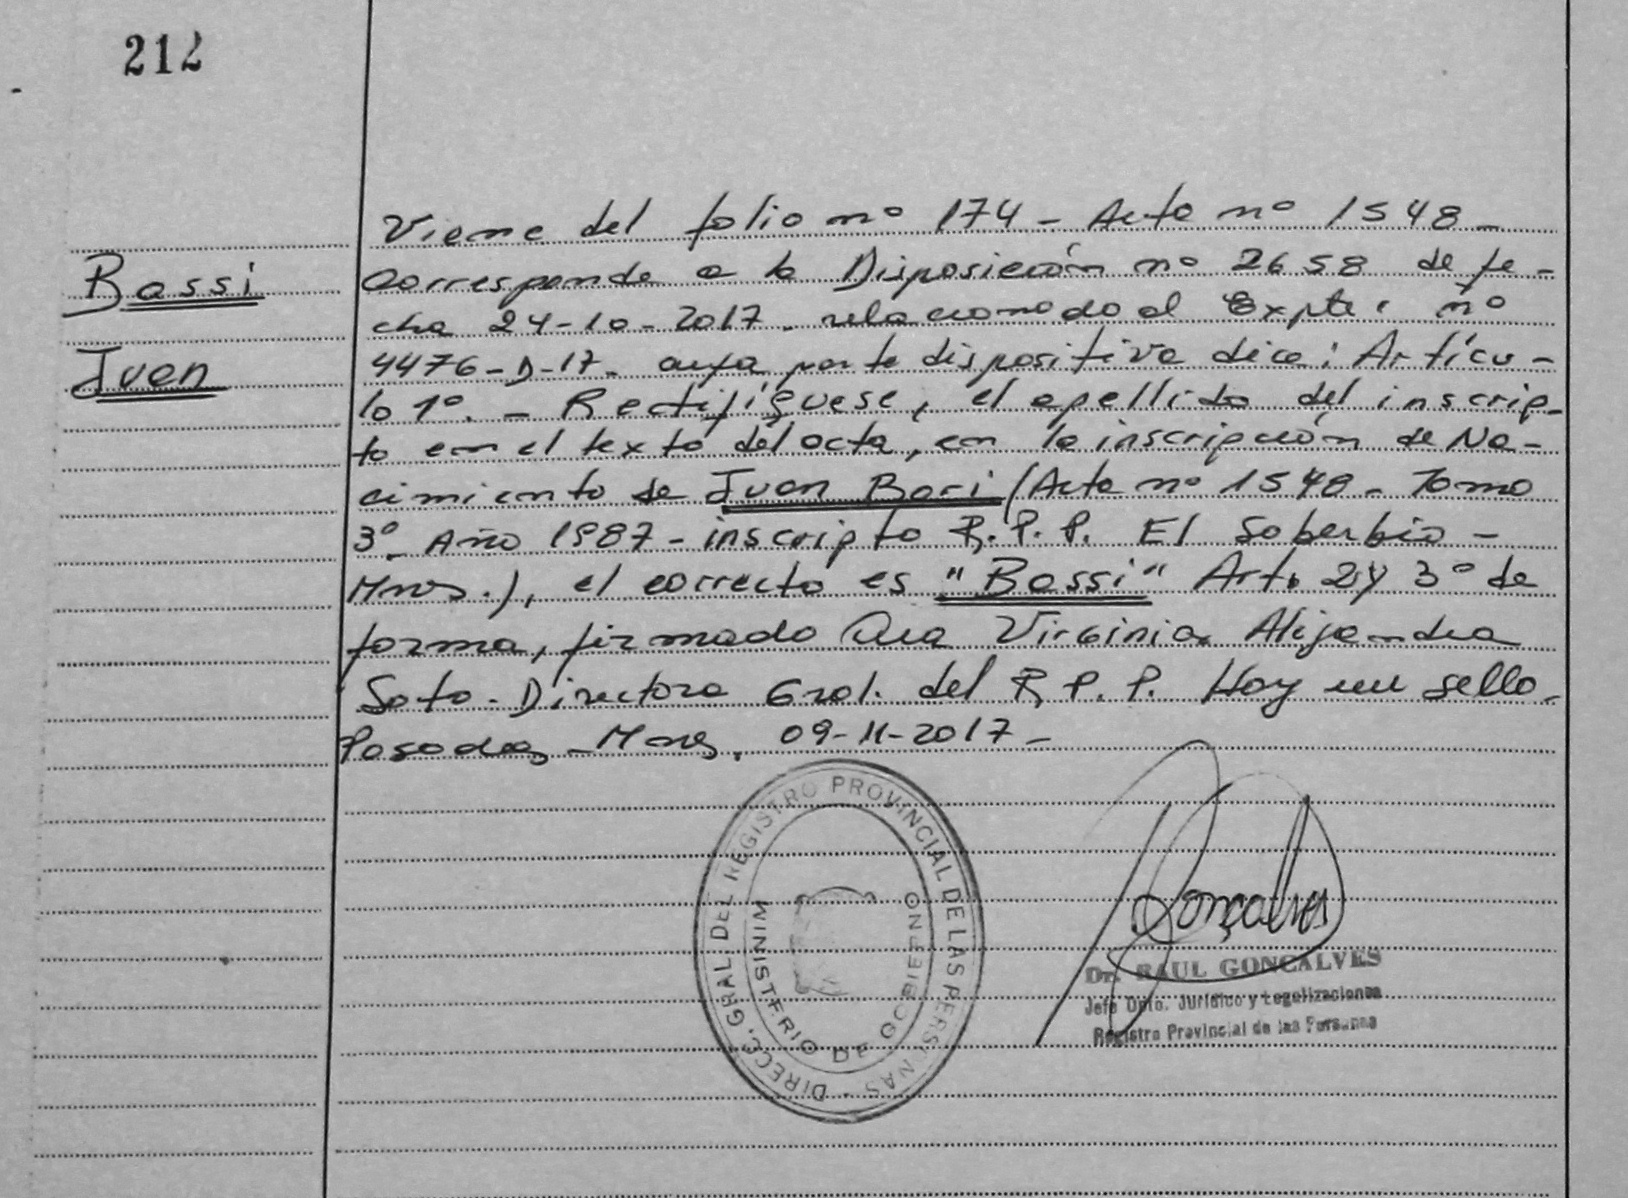 212
Bassi
Juan
Viene del folio nº 174 - Acta nº 1548 -
Corresponde a la Disposición nº 2658 de fe-
cha 24-10-2017 - relacionado al Expte. nº
4476-D-17- cuya parte dispositiva dice: Artícu-
lo 1º. - Rectifíquese, el apellido del inscrip-
to en el texto del acta, en la inscripción de Na-
cimiento de Juan Bari (Acta nº 1548 - Tomo
3º - Año 1987 - inscripto R.P.P. El Soberbio -
Mnes.), el correcto es "Bassi" Art. 2 y 3º de
forma, firmado Dra Virginia Alejandra
Soto - Directora Gral. del R.P.P. Hay un sello.
Posadas - Mnes, 09-11-2017 -
DIRECC. GRAL. DEL REGISTRO PROVINCIAL DE LAS PERSONAS -
MINISTERIO DE GOBIERNO
Gonçalves
Dr. RAUL GONCALVES
Jefe Dpto. Jurídico y Legalizaciones
Registro Provincial de las Personas